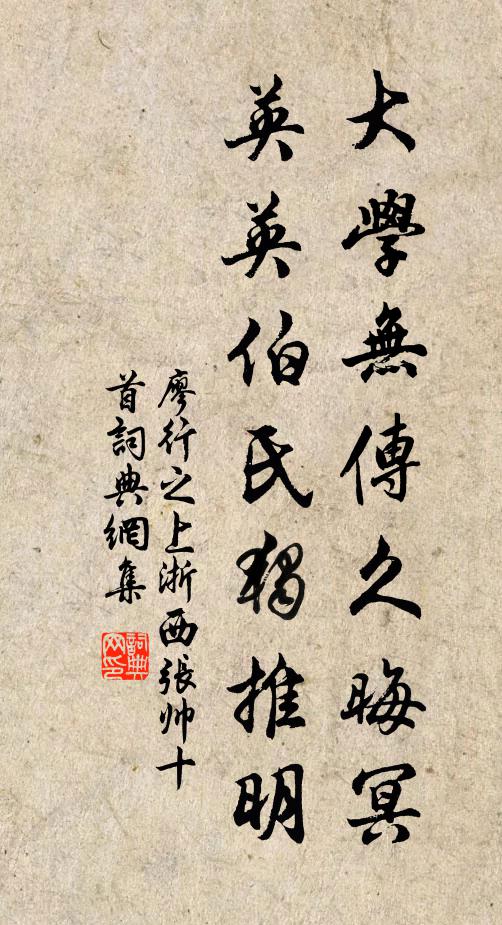 大學無傳久晦冥
英英伯氏獨推明
廖行之上浙西張帅十
首詞典網集
詞典
网印